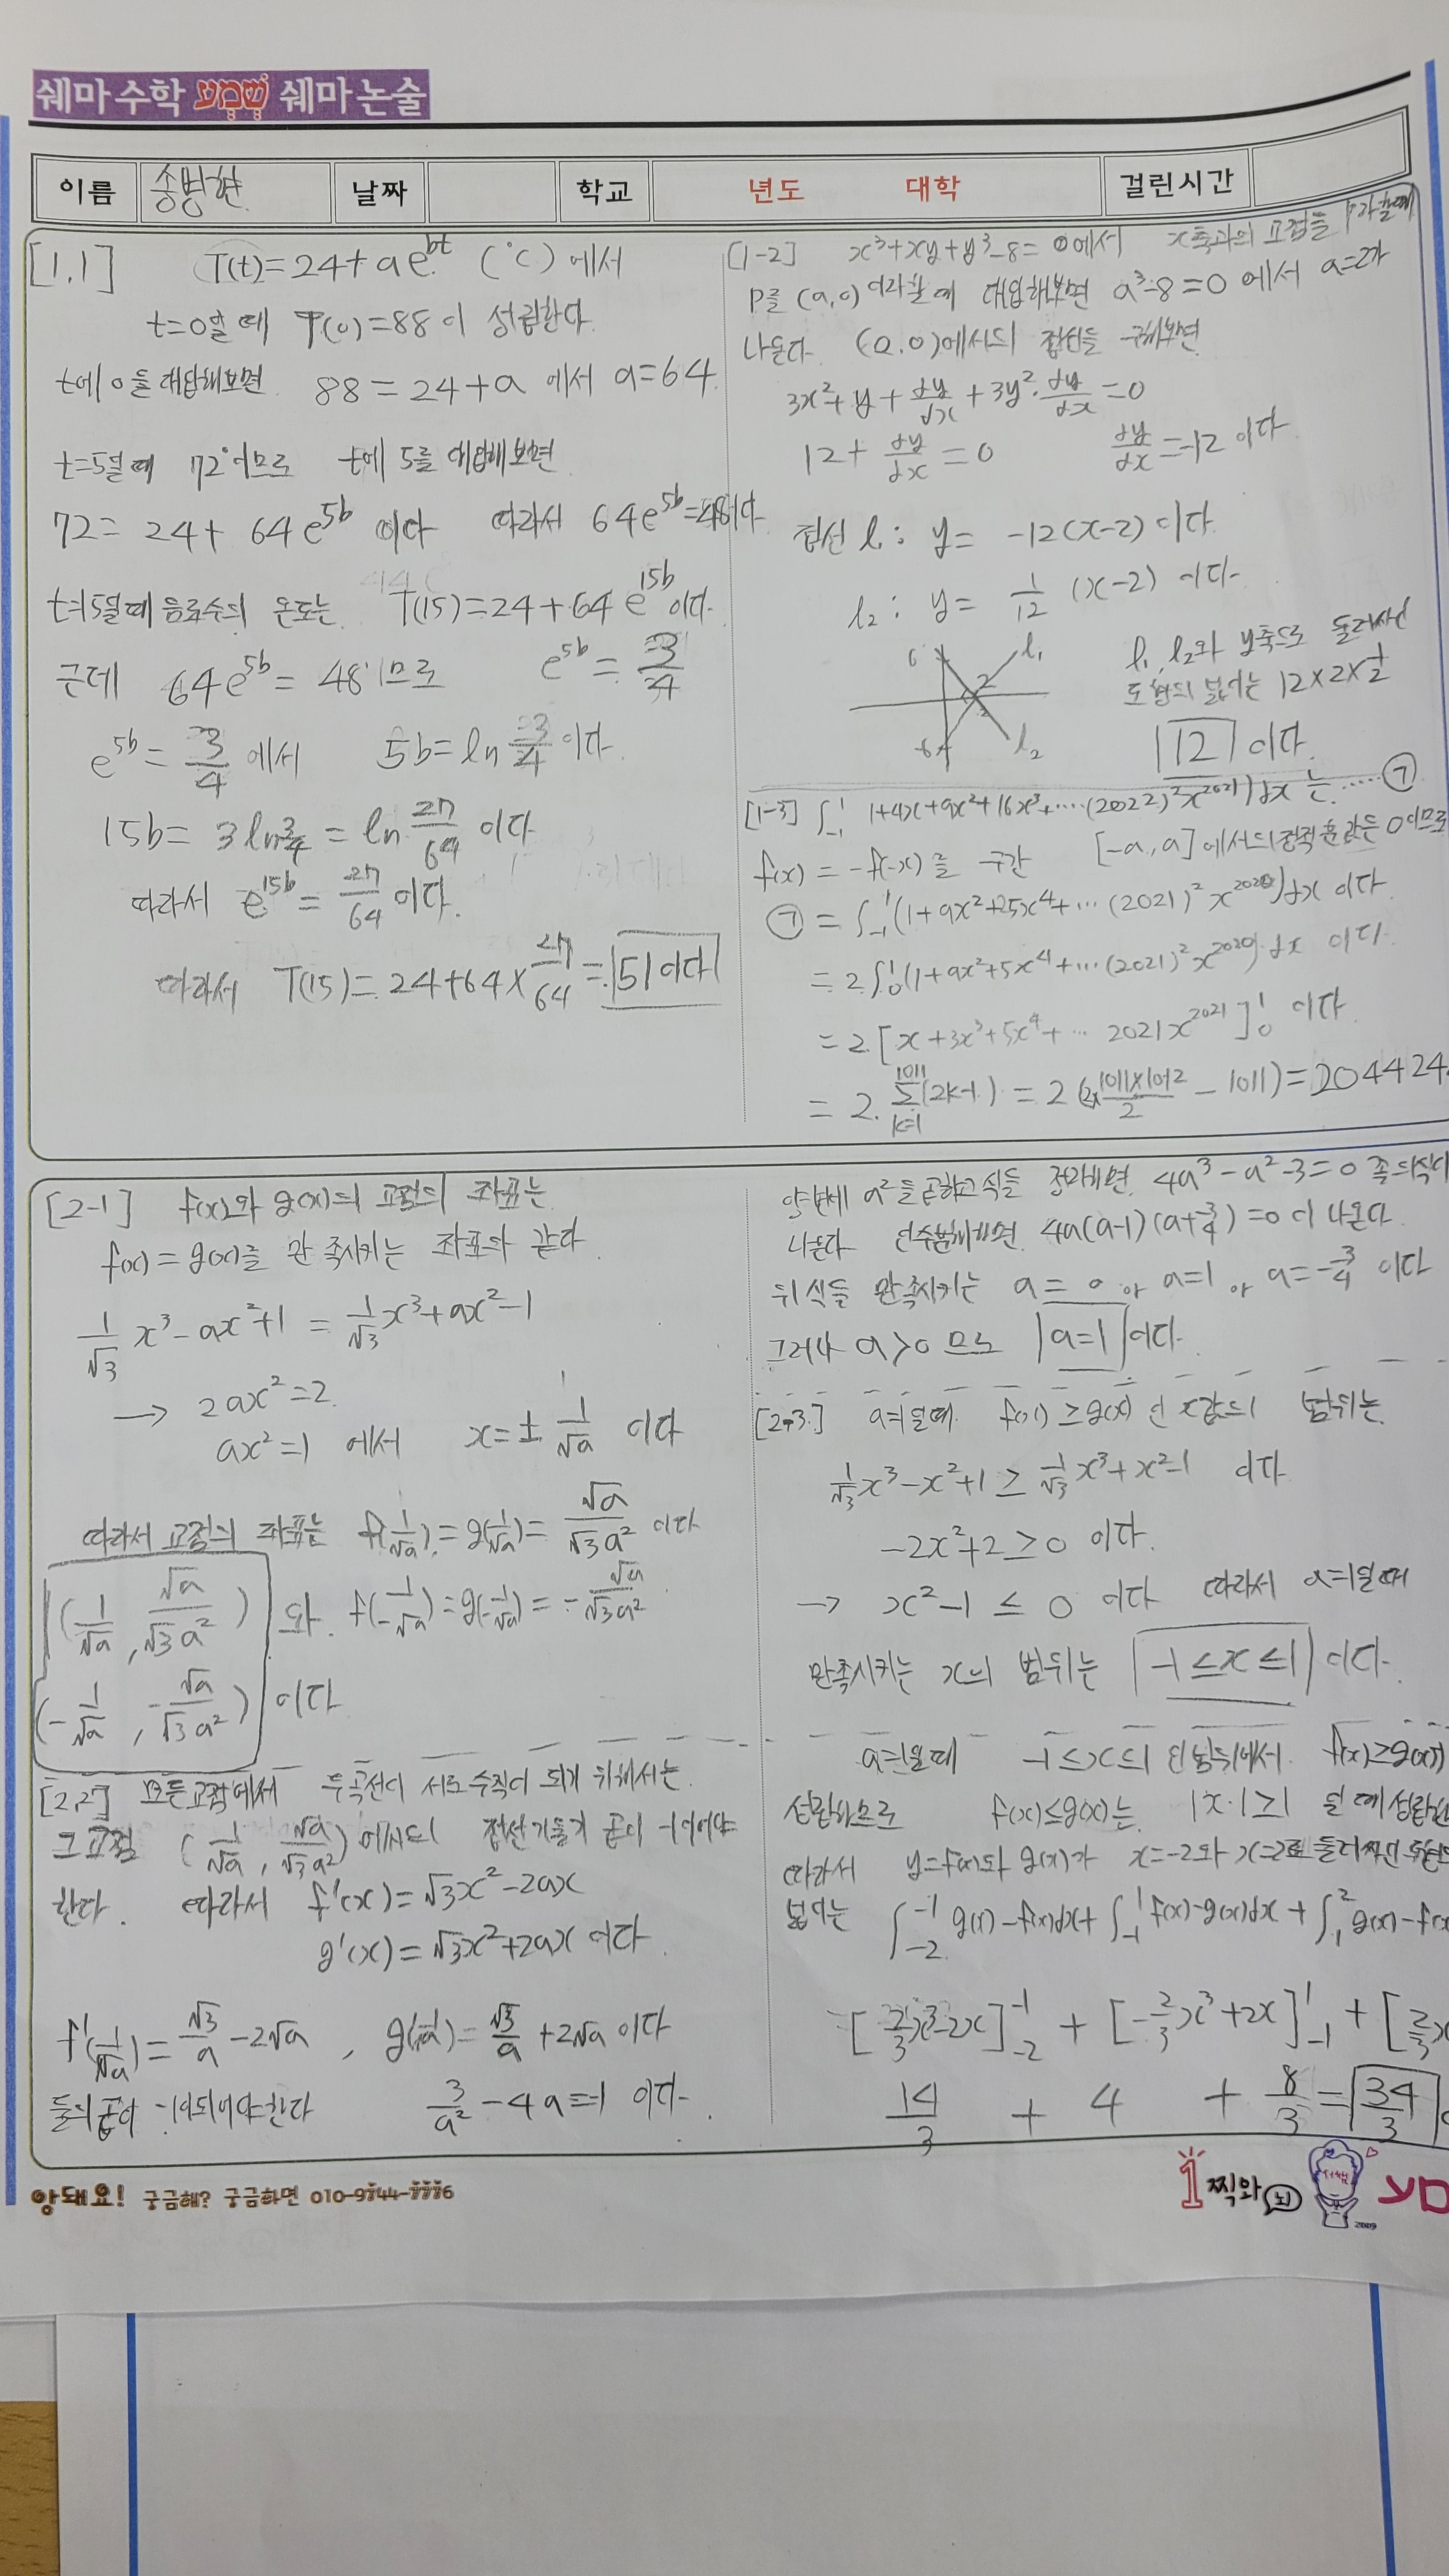 쉐마 수학 שְׁמַע 쉐마 논술
이름 송병현 날짜 학교 년도 대학 걸린시간
[1.1] T(t)=24+ae^{bt} (℃) 에서
t=0일 때 T(0)=88이 성립한다.
t에 0을 대입해보면 88=24+a 에서 a=64.
t=5일 때 72°이므로 t에 5를 대입해보면
72=24+64e^{5b} 이다 따라서 64e^{5b}=48이다
t=15일때 음료수의 온도는 T(15)=24+64e^{15b}이다.
근데 64e^{5b}=48이므로 e^{5b}=3/4
e^{5b}=3/4 에서 5b=ln 3/4 이다.
15b=3ln 3/4=ln 27/64 이다
따라서 e^{15b}=27/64 이다.
따라서 T(15)=24+64×27/64=51이다
[1-2] x³+xy+y³-8=0에서 x축과의 교점을 P라 할 때
P를 (a,0)이라할 때 대입해보면 a³-8=0 에서 a=2가
나온다. (2,0)에서의 접선을 구해보면
3x²+y+dy/dx+3y²·dy/dx=0
12+dy/dx=0 dy/dx=-12 이다
접선 l₁: y=-12(x-2) 이다.
l₂: y=1/12(x-2) 이다.
6 l₁
2
-6 l₂
l₁, l₂와 y축으로 둘러싸인
도형의 넓이는 12×2×1/2
12 이다.
[1-3] ∫_{-1}^{1} 1+4x+9x²+16x³+⋯(2022)²x^{2021})dx 는 ⋯⋯ ㉠
f(x)=-f(-x)를 구간 [-a,a]에서의 정적분 값은 0이므로
㉠=∫_{-1}^{1}(1+9x²+25x⁴+⋯(2021)²x^{2020})dx 이다.
=2∫_0^1(1+9x²+5x⁴+⋯(2021)²x^{2020})dx 이다.
=2[x+3x³+5x⁴+⋯ 2021x^{2021}]_0^1 이다.
=2·Σ_{k=1}^{1011}(2k-1)=2(2×1011×1012/2-1011)=204424
[2-1] f(x)와 g(x)의 교점의 좌표는
f(x)=g(x)를 만족시키는 좌표와 같다.
1/√3 x³-ax²+1=1/√3 x³+ax²-1
→ 2ax²=2
ax²=1 에서 x=±1/√a 이다
따라서 교점의 좌표는 f(1/√a)=g(1/√a)=√a/√3a² 이다
(1/√a, √a/√3a²) 와 f(-1/√a)=g(-1/√a)=-√a/√3a²
(-1/√a, -√a/√3a²) 이다
[2,2] 모든교점에서 두곡선이 서로 수직이 되기 위해서는
그 교점 (1/√a, √a/√3a²)에서의 접선기울기 곱이 -1이어야
한다. 따라서 f'(x)=√3x²-2ax
g'(x)=√3x²+2ax 이다.
f'(1/√a)=√3/a-2√a, g'(1/√a)=√3/a+2√a 이다
둘의 곱이 -1이되어야한다 3/a²-4a=-1 이다.
양변에 a²을 곱하고 식을 정리하면 4a³-a²-3=0 꼴의식이
나온다 인수분해하면 4a(a-1)(a+3/4)=0 이 나온다
위 식을 만족시키는 a=0 or a=1 or a=-3/4 이다
그러나 a>0 므로 a=1이다.
[2-3.] a=1일때 f(x)≥g(x)인 x값의 범위는
1/√3 x³-x²+1≥1/√3 x³+x²-1 이다
-2x²+2≥0 이다.
→ x²-1≤0 이다 따라서 a=1일때
만족시키는 x의 범위는 -1≤x≤1 이다.
a=1일때 -1≤x≤1인 범위에서 f(x)≥g(x)가
성립하므로 f(x)≤g(x)는 |x|≥1 일 때 성립한
따라서 y=f(x)와 g(x)가 x=-2와 x=2로 둘러싸인
넓이는 ∫_{-2}^{-1} g(x)-f(x)dx+∫_{-1}^{1} f(x)-g(x)dx+∫_1^2 g(x)-f(x
[2/3x³-2x]_{-2}^{-1}+[-2/3x³+2x]_{-1}^{1}+[2/3x
14/3+4+8/3=34/3
앙돼요! 궁금해? 궁금하면 010-9744-7776
1찍와 뇌
2009